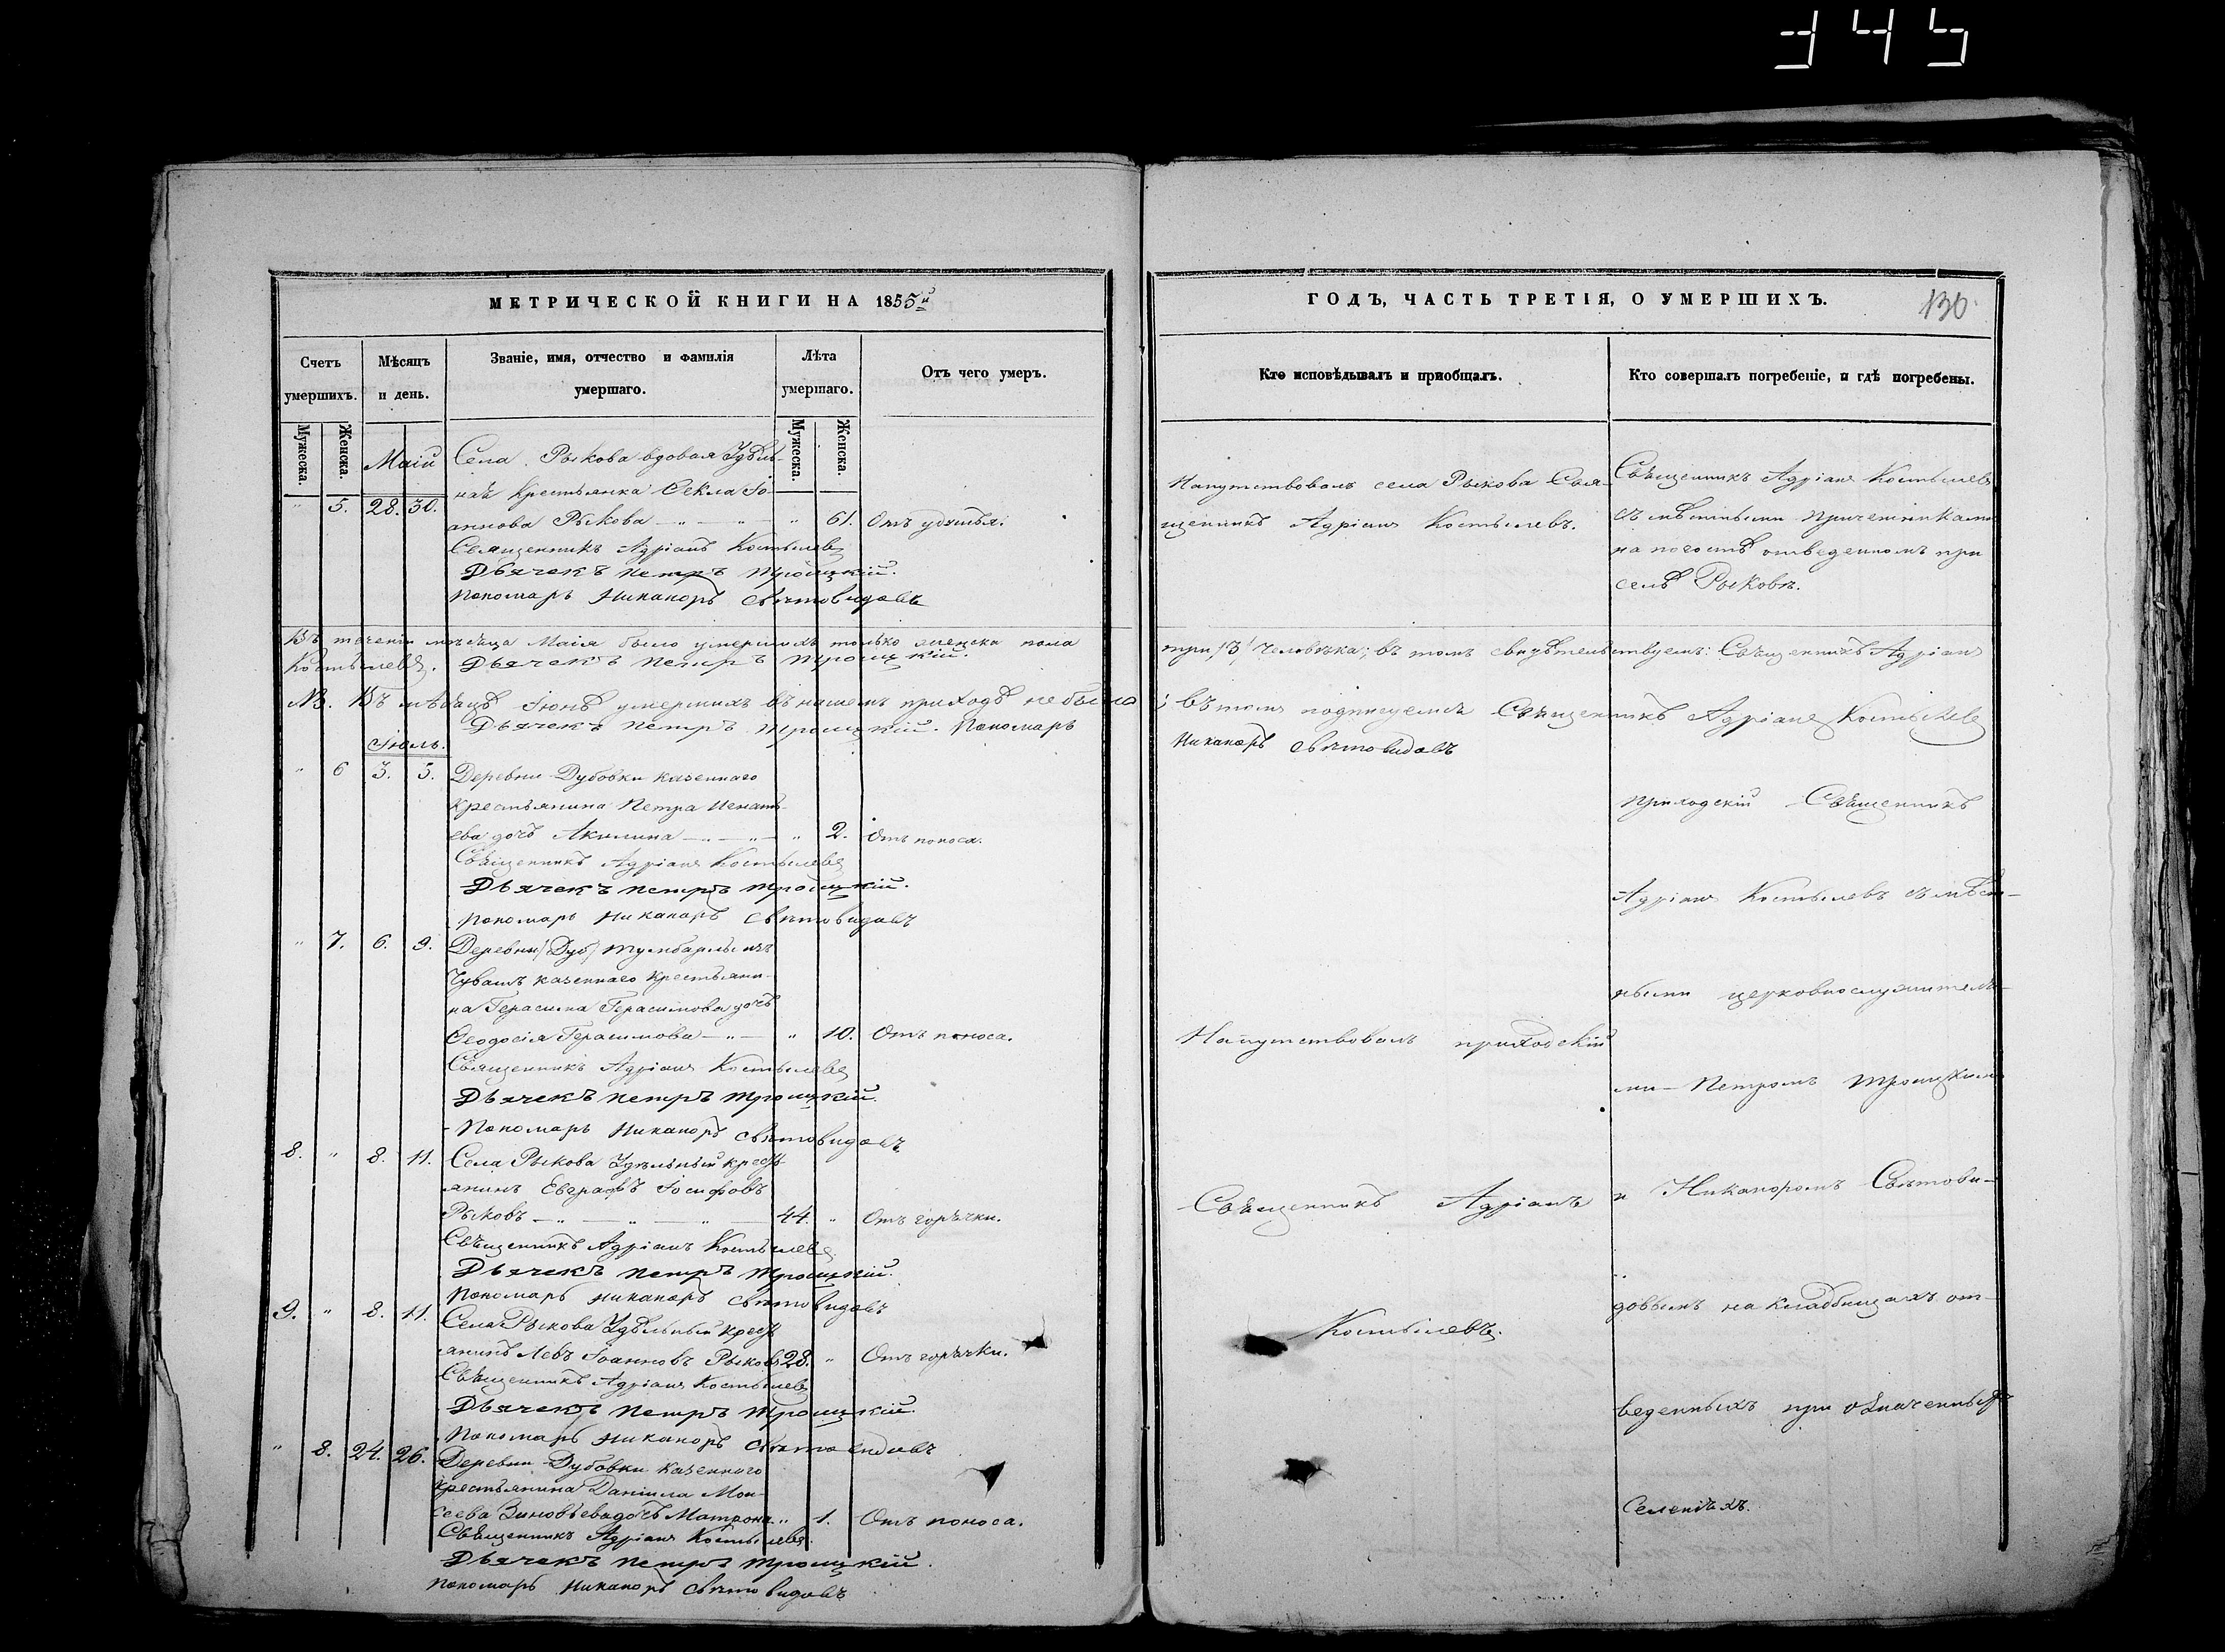 345
МЕТРИЧЕСКОЙ КНИГИ НА 1855й
Счетъ умершихъ.
Мѣсяцъ и день.
Званіе, имя, отчество и фамилія умершаго.
Лѣта умершаго.
Отъ чего умеръ.
Мужеска.
Женска.
Мужеска.
Женска.
Маій
Села Рыкова вдовая Удѣль-
ная крестьянка Ѳекла Іо-
" 5. 28. 30. аннова Рыкова — " — " — " 61. Отъ удушья.
Священникъ Адріанъ Костылевъ
Дьячекъ Петръ Троицкій.
Пономарь Никаноръ Свѣтовидовъ
Въ теченіи мѣсяца Маія было умершихъ только женска пола
Костылевъ. Дьячекъ Петръ Троицкій.
NB. Въ мѣсяцѣ Іюнѣ умершихъ въ нашемъ приходѣ не было
Дьячекъ Петръ Троицкій. Пономарь
Іюль.
" 6 3. 5. Деревни Дубовки казеннаго
крестьянина Петра Игнать-
ева дочь Акилина — " — " — " 2. Отъ поноса.
Священникъ Адріанъ Костылевъ
Дьячекъ Петръ Троицкій.
Пономарь Никаноръ Свѣтовидовъ
" 7. 6. 9. Деревни /Дуб/ Тумбарлы изъ
Чувашъ казеннаго крестьяни-
на Герасима Герасимова дочь
Ѳеодосія Герасимова — " — " 10. Отъ поноса.
Священникъ Адріанъ Костылевъ
Дьячекъ Петръ Троицкій.
Пономарь Никаноръ Свѣтовидовъ
8. " 8. 11. Села Рыкова Удѣльный кресть-
янинъ Евграфъ Іосифовъ
Рыковъ — " — " — " — 44. " Отъ горячки.
Священникъ Адріанъ Костылевъ
Дьячекъ Петръ Троицкій.
Пономарь Никаноръ Свѣтовидовъ
9. " 8. 11. Села Рыкова Удѣльный кресть
янинъ Левъ Іоанновъ Рыковъ 28. " Отъ горячки.
Священникъ Адріанъ Костылевъ
Дьячекъ Петръ Троицкій.
Пономарь Никаноръ Свѣтовидовъ
" 8. 24. 26. Деревни Дубовки казеннаго
крестьянина Даніила Мои-
сеева Зиновьева дочь Матрона " 1. Отъ поноса.
Священникъ Адріанъ Костылевъ
Дьячекъ Петръ Троицкій.
Пономарь Никаноръ Свѣтовидовъ
ГОДЪ, ЧАСТЬ ТРЕТІЯ, О УМЕРШИХЪ.
130
Кто исповѣдывалъ и пріобщалъ.
Кто совершалъ погребеніе, и гдѣ погребены.
Напутствовалъ села Рыкова Свя-
щенникъ Адріанъ Костылевъ.
Священникъ Адріанъ Костылевъ
съ мѣстными причетниками
на погостѣ отведенномъ при
селѣ Рыковѣ.
три /3/ человѣка; въ томъ свидѣтельствуемъ: Священникъ Адріанъ
; въ томъ подписуемся Священникъ Адріанъ Костылевъ
Никаноръ Свѣтовидовъ
Напутствовалъ приходскій
Священникъ Адріанъ
Костылевъ.
Приходскій Священникъ
Адріанъ Костылевъ съ мѣст-
ными церковнослужителя-
ми — Петромъ Троицкимъ
и Никаноромъ Свѣтови-
довымъ на кладбищахъ от-
веденныхъ при означенныхъ
Селеніяхъ.